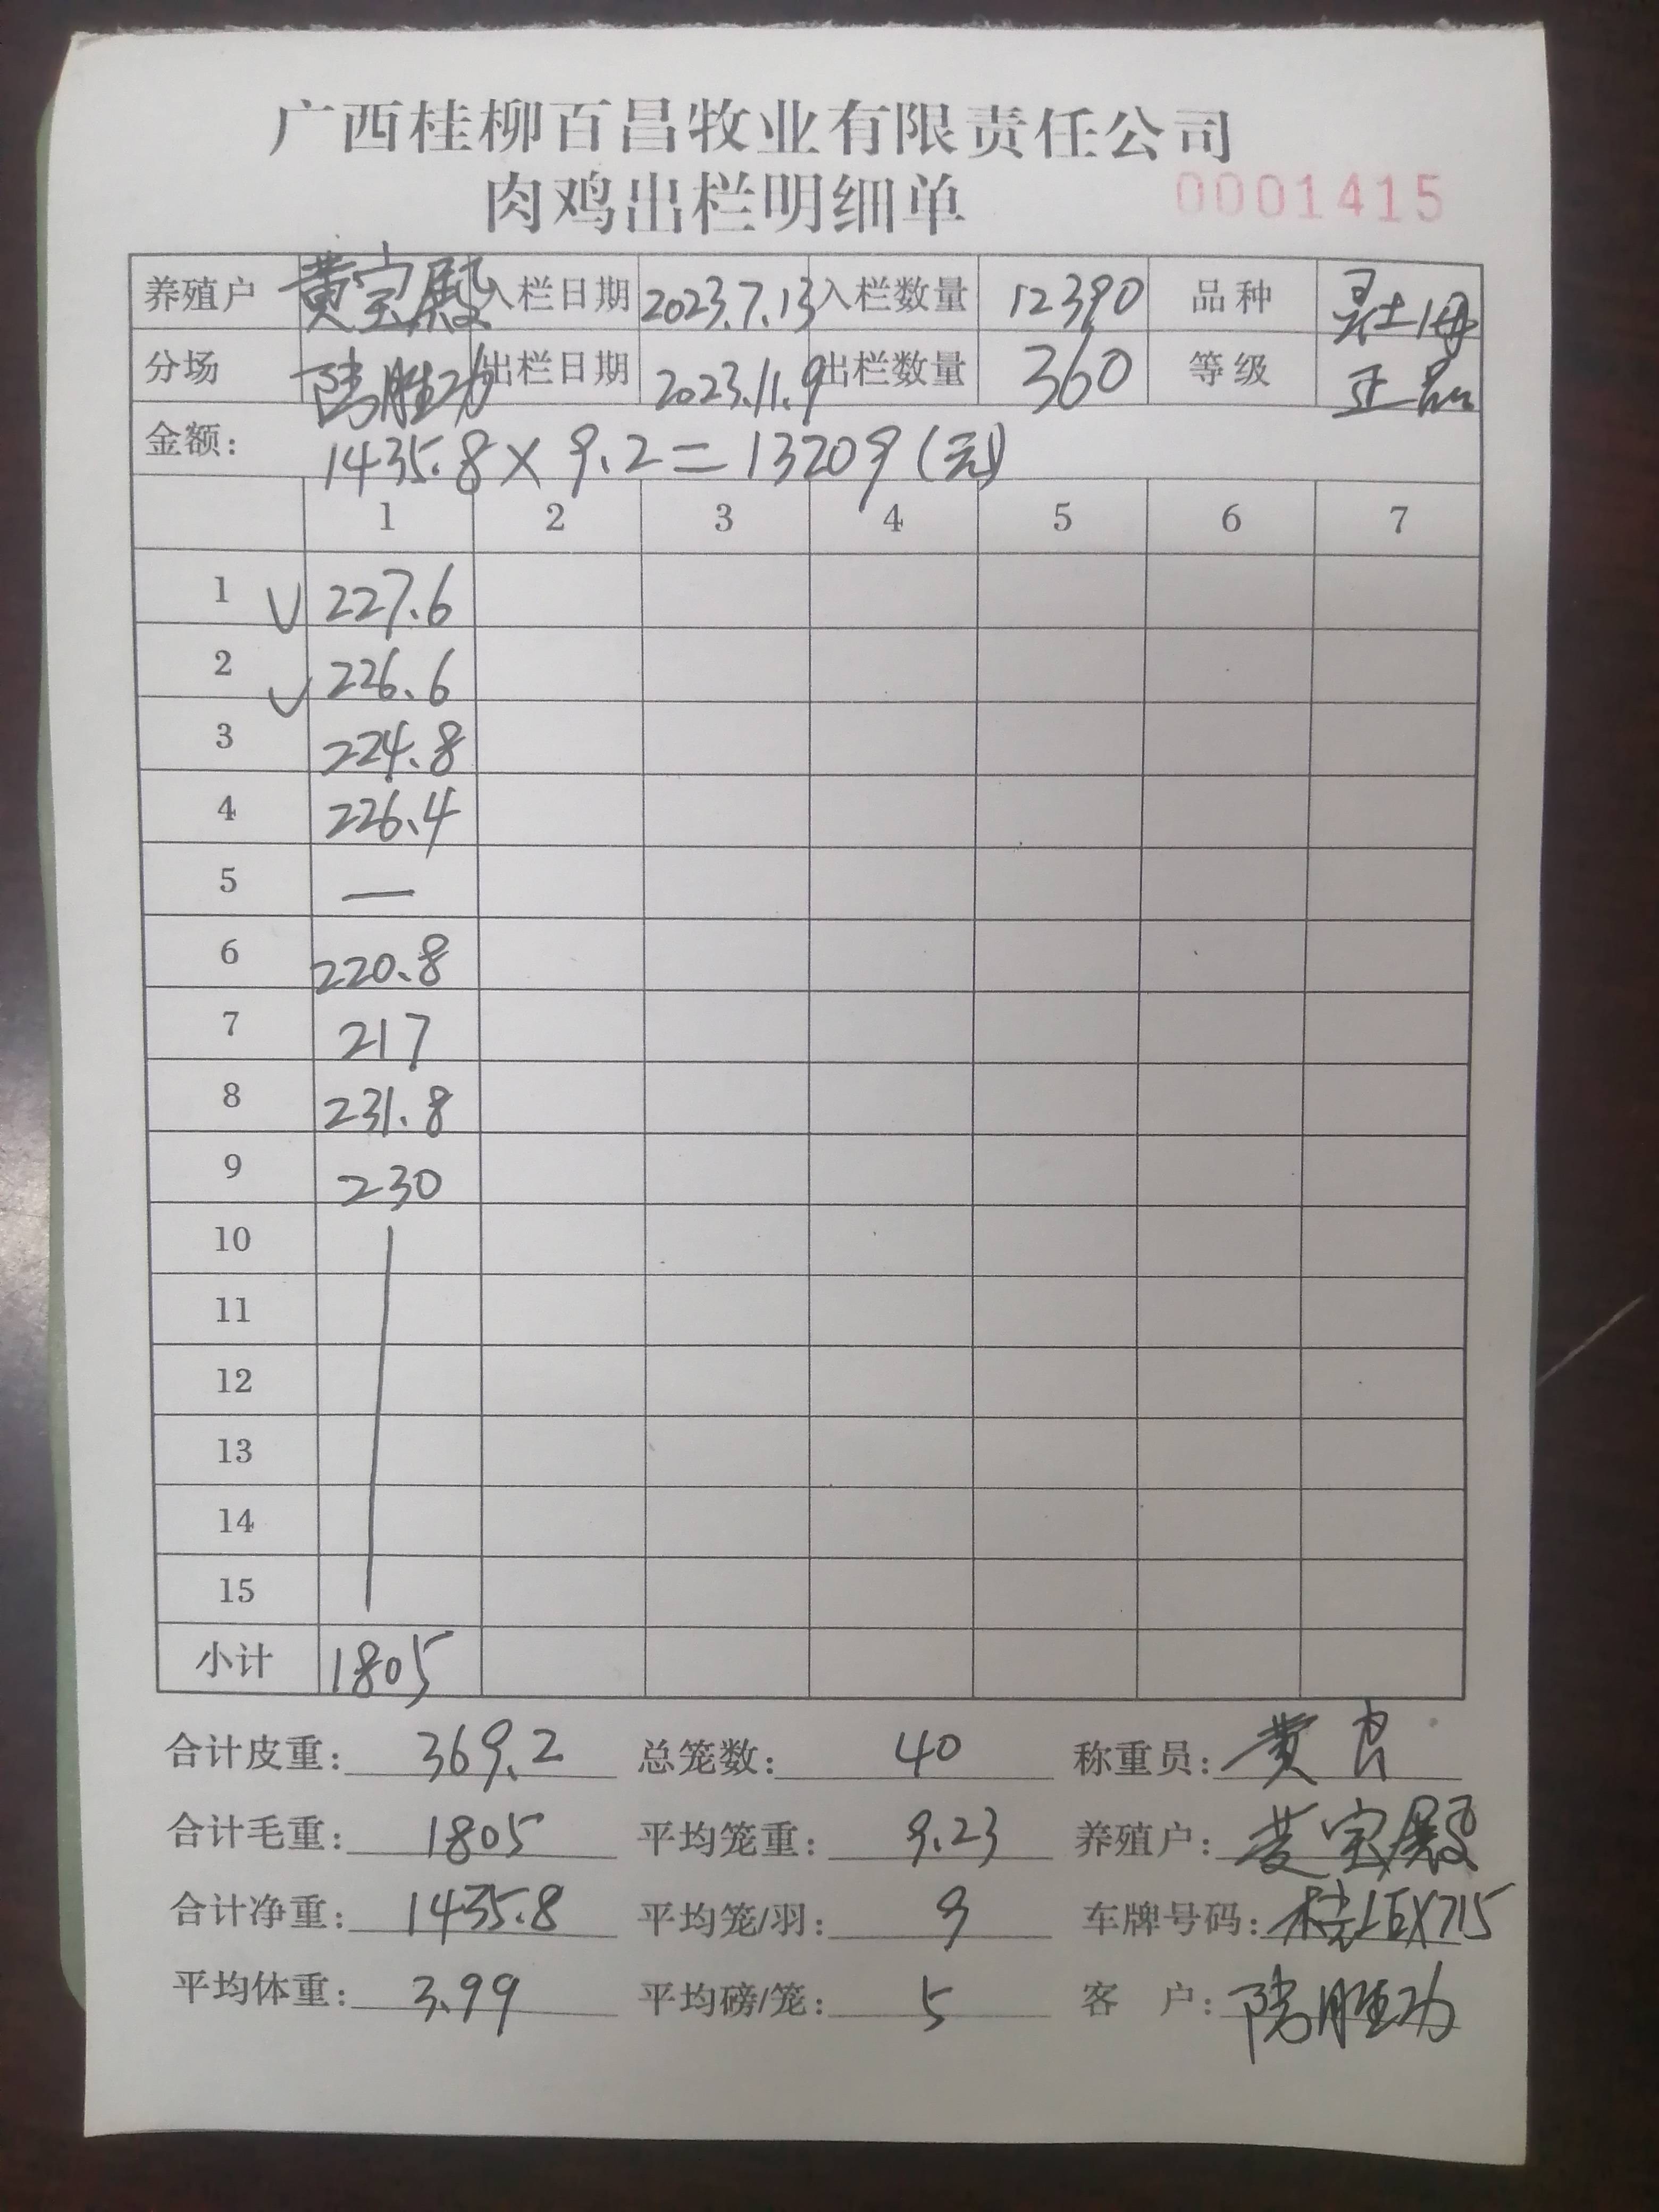 广西桂柳百昌牧业有限责任公司
肉鸡出栏明细单 0001415
养殖户 黄宝殿 入栏日期 2023.7.13 入栏数量 12390 品种
分场 胜功 出栏日期 2023.11.9 出栏数量 360 等级 正品
金额: 1435.8 × 9.2 = 13209 (元)
1 2 3 4 5 6 7
1 227.6
2 226.6
3 224.8
4 226.4
5 —
6 220.8
7 217
8 231.8
9 230
10
11
12
13
14
15
小计 1805
合计皮重: 369.2 总笼数: 40 称重员: 黄
合计毛重: 1805 平均笼重: 9.23 养殖户: 黄宝殿
合计净重: 1435.8 平均笼/羽: 9 车牌号码: 桂LEX715
平均体重: 3.99 平均磅/笼: 5 客户: 胜功